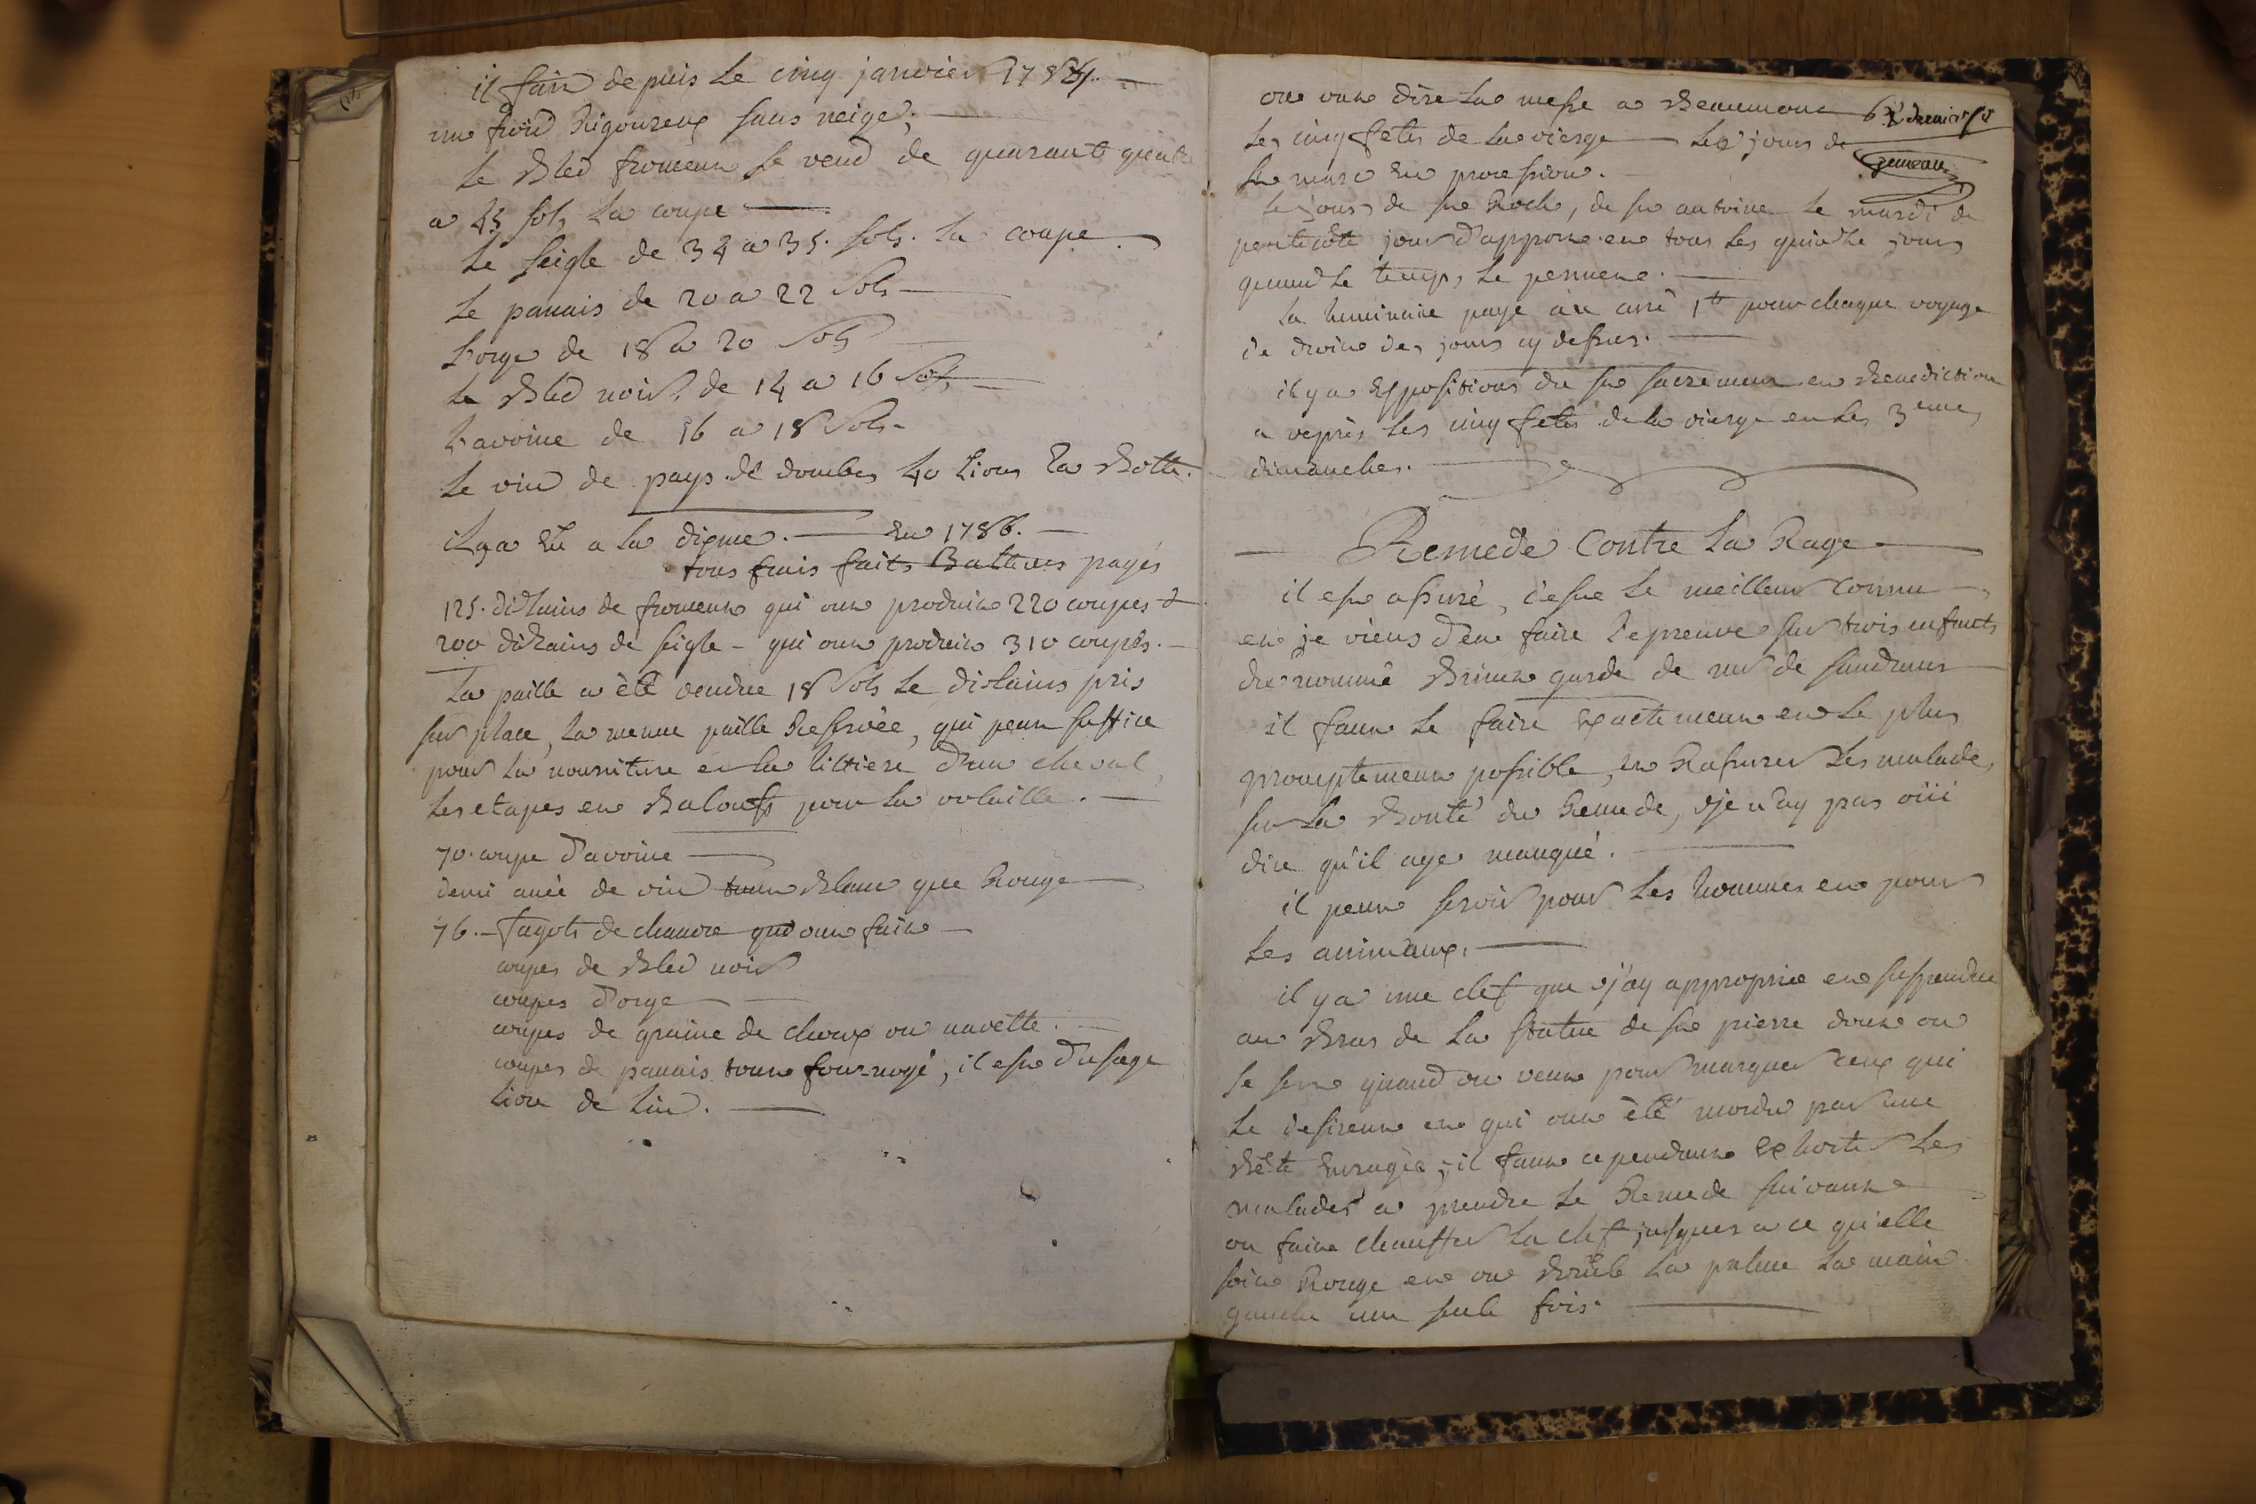 il fait depuis le cinq janvier 1787.
un froid Rigoureux sans neige;
le Bled froment se vend de quarante quatre
a 45 sols la coupe
le seigle de 34 a 35. sols. la coupe.
le panais de 20 a 22 sols
l'orge de 18 a 20 sols
le Bled noir de 14 a 16 sols
l'avoine de 16 a 18 sols
le vin de pays de dombes 40 livres la Botte.
il y a eu a la dixme. en 1786.
tous frais faits Batteurs payés
125. dizains de froment qui ont produit 220 coupes &
200 dizains de seigle - qui ont produit 310 coupes.
La paille a été vendue 18 sols le dizains pris
sur place, la menue paille Reservée, qui peut suffire
pour la nourriture et la littiere d'un cheval,
les etapes et Baloufs pour la volaille.
70. coupe d'avoine
demi anée de vin tant Blanc que Rouge
76. fagots de chanvre qui ont fait
coupes de Bled noir
coupes d'orge
coupes de graine de choux ou navette.
coupes de panais tout fouroyé, il est d'usage
livre de lin.
on vat dire la messe a Beaumont
les cinq fetes de la vierge les jours de
st marc en procession.
le jours de st Roch, de st antoine le mardi de
pentecôte jour d'apport et tous les quinze jours
quand le temps le permet.
la luminaire paye au curé 1# pour chaque voyage
de droit des jours cy dessus.
il y a Expositions du st sacrement et Benediction
a vepres les cinq fetes de la vierge et les 3emes
dimanches.
Remede Contre la Rage
il est assuré, c'est le meilleur connu
et je viens d'en faire l'epreuve sur trois enfants
du nommé Brinet garde de mr de sandrans
il faut le faire Exactement et le plus
promptement possible, et Rassurer les malades
sur la Bonté du Remede, je n'ay pas oüi
dire qu'il aye manqué.
il peut servir pour les hommes et pour
les animaux.
il y a une clef que j'ay appropriée et suspendue
au Bras de la statue de st pierre dont on
se sert quand on veut pour marquer ceux qui
le desirent et qui ont été mordu par une
Bête Enragée; il faut cependant Exhorter les
malades a prendre le Remede suivant
on fait chauffer la clef jusques a ce qu'elle
soit Rouge et on Brule la palme la main
gauche une seule fois.